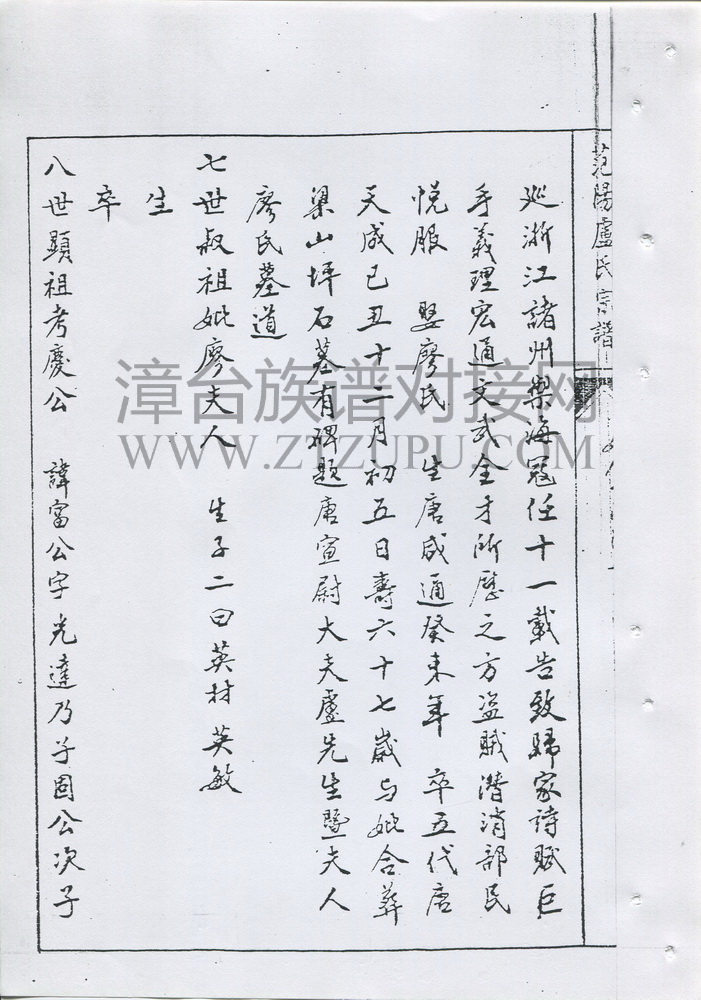 范陽盧氏宗譜
巡浙江諸州禦海寇任十一載告致歸家詩賦巨
手義理宏通文武全才所歷之方盜賊潛消部民
悅服 娶廖氏 生唐咸通癸未年 卒五代唐
天成己丑十二月初五日壽六十七歲与妣合葬
梁山坪石墓有碑題唐宣尉大夫盧先生暨夫人
廖氏墓道
七世叔祖妣廖夫人 生子二曰英材 英敏
生
卒
八世顯祖考慶公 諱富公字光達乃子固公次子
漳台族谱对接网
WWW.ZTZUPU.COM